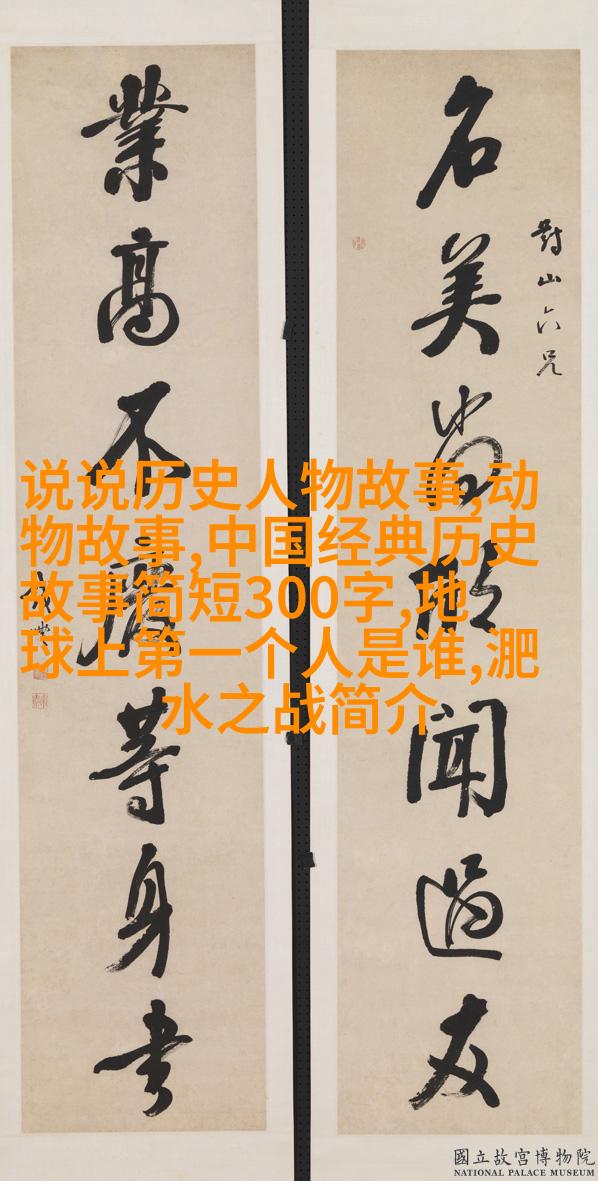 對山六兄
名美尚欣聞過友
業高不廢等身書
说说历史人物故事,动
物故事,中国经典历史
故事简短300字,地
球上第一个人是谁,淝
水之战简介
國立故宮博物院
NATIONAL PALACE MUSEUM